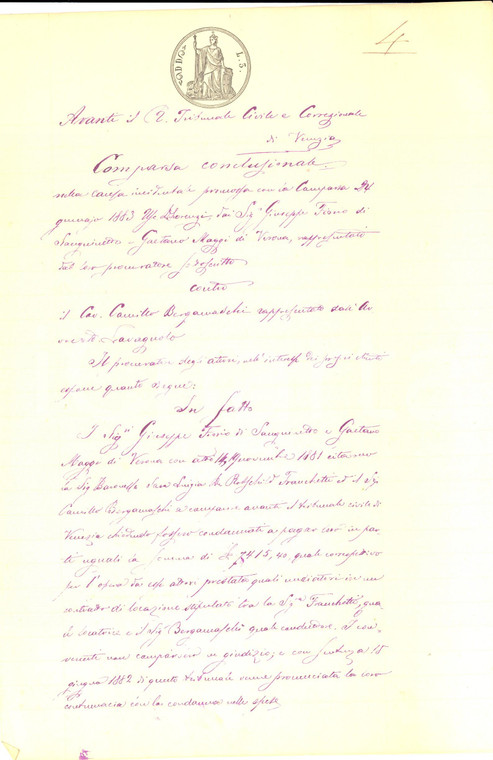 4
L. 5.
Avanti il R. Tribunale Civile e Correzionale
di Venezia
Comparsa conclusionale
nella causa incidentale promossa con la Comparsa 24
gennaio 1883 dai Sigi Giuseppe di
Sanguinetto - Gaetano Maggi di Verona, rappresentati
dal loro procuratore sottoscritto
contro
il Cav. Camillo Bergamaschi rappresentato dall'Av
vocato
Il procuratore degli attori, nell'interesse dei propri clienti
espone quanto segue:
In fatto
I Sigri Giuseppe di Sanguinetto e Gaetano
Maggi di Verona con atto novembre 1881 citarono
la Sig Baronessa Sara Luigia de Rothschild Franchetti ed il Sig
Camillo Bergamaschi a comparire avanti il tribunale civile di
Venezia chiedendo fossero condannati a pagare loro in par
ti uguali la somma di £ 7415,40, quale corrispettivo
per l'opera da essi attori prestata quali mediatori in un
contratto di locazione stipulato tra la Sigra Franchetti, qua
le locatrice e il Sig Bergamaschi quale conduttore. I con
venuti non comparvero in giudizio; e con sentenza 15
giugno 1882 di questo tribunale venne pronunciata la loro
contumacia con la condanna nelle spese